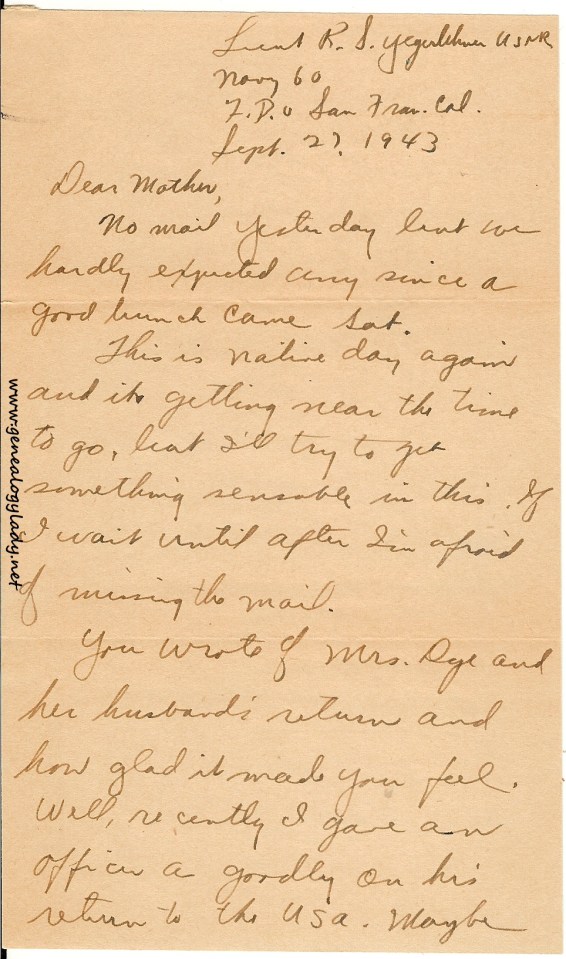 Lieut R. S. Yegerlehner USNR
Navy 60
F.P.O San Fran. Cal.
Sept. 27, 1943
Dear Mother,
No mail yesterday but we
hardly expected any since a
good bunch came Sat.
This is native day again
and its getting near the time
to go, but I'll try to get
something sensable in this. If
I wait until after I'm afraid
of missing the mail.
You wrote of Mrs. Dye and
her husband's return and
how glad it made you feel.
Well, recently I gave an
officer a goodby on his
return to the USA. Maybe
www.genealogylady.net